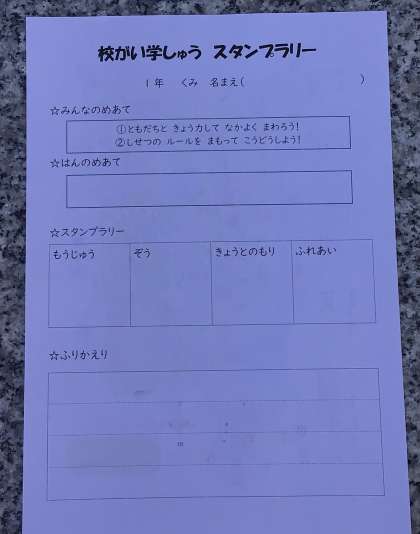 校がい学しゅう スタンプラリー
1年 くみ 名まえ( )
☆みんなのめあて
①ともだちと きょう力して なかよく まわろう!
②しせつの ルールを まもって こうどうしよう!
☆はんのめあて
☆スタンプラリー
もうじゅう ぞう きょうとのもり ふれあい
☆ふりかえり